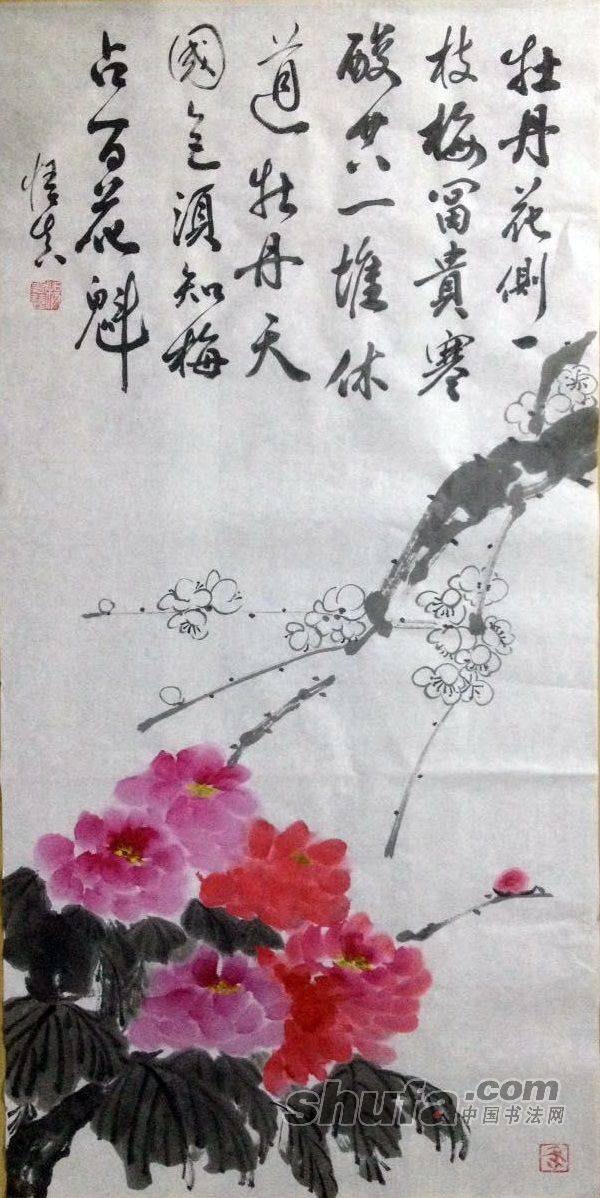 牡丹花側一
枝梅富貴寒
酸共一堆休
道牡丹天
國色須知梅
占百花魁
悟真
shufa.com
中国书法网